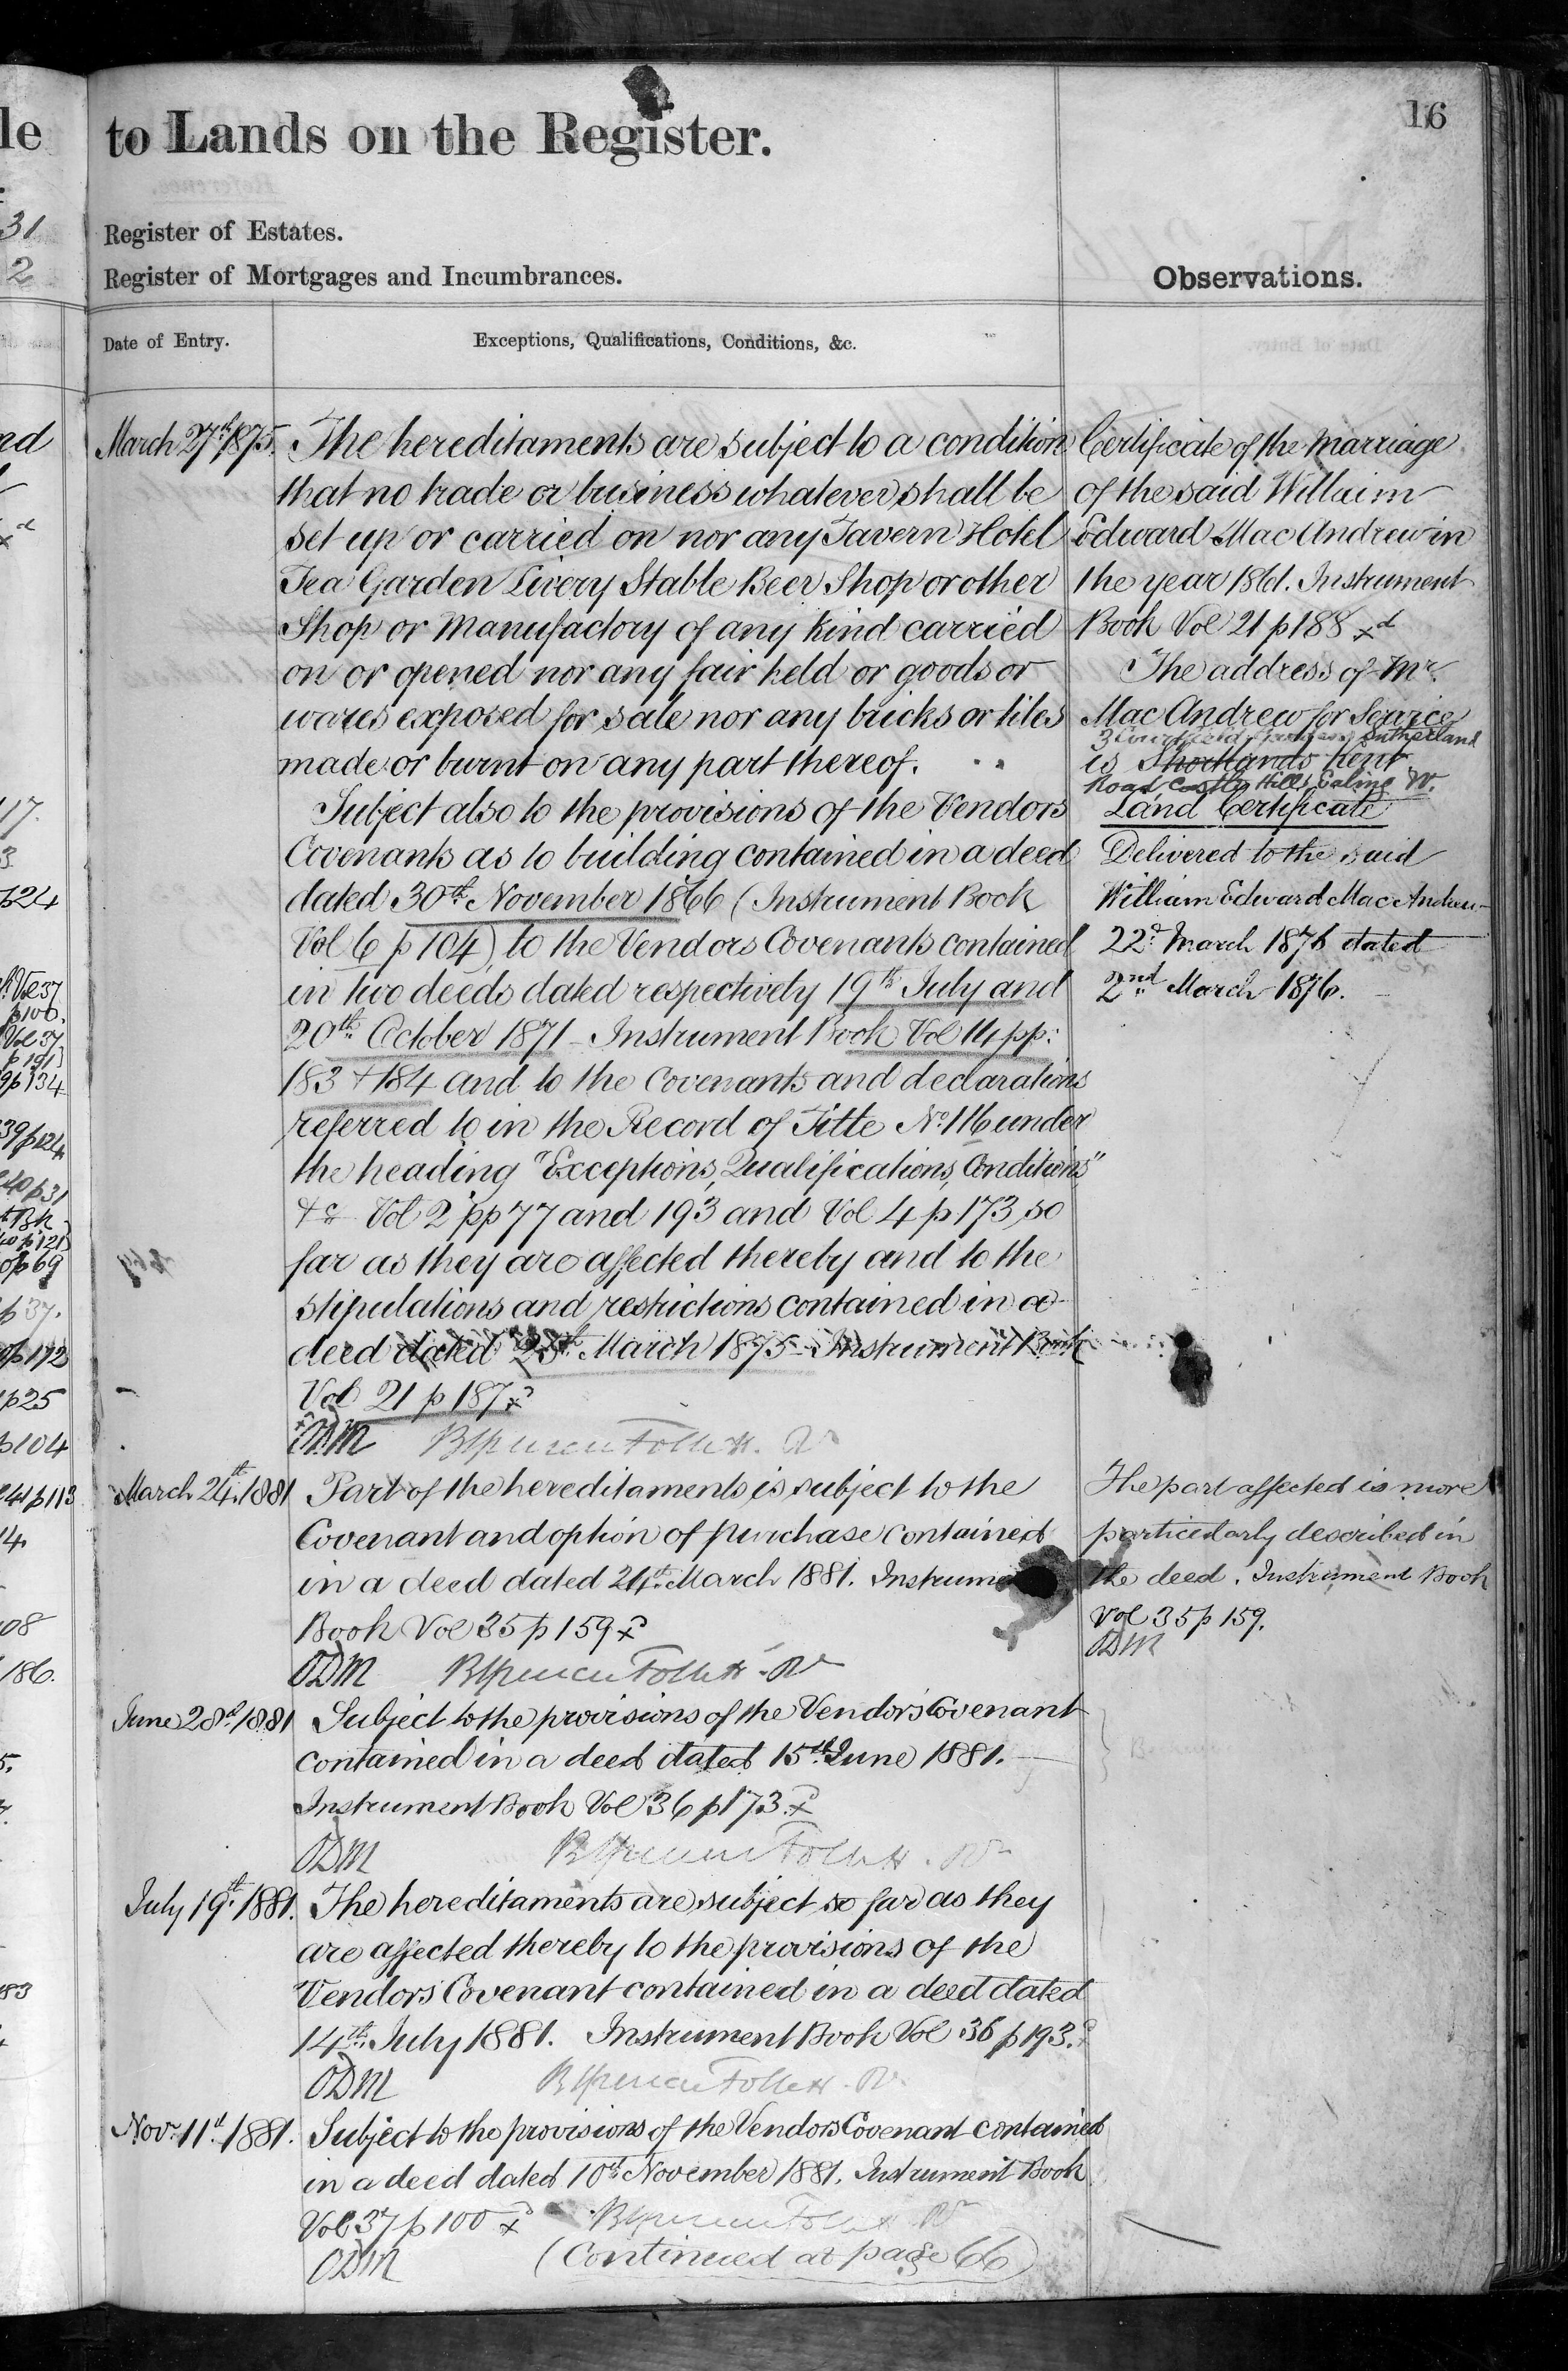 le
31
2
nd
117.
3
p24
Vol 37
p100.
Vol 37
p 191)
9p134
39p124
p31
p121)
op69
p37.
p172
p25
p104
41p113
14.
108
186.
5.
183
to Lands on the Register.
16
Register of Estates.
Register of Mortgages and Incumbrances.
Observations.
Date of Entry.
Exceptions, Qualifications, Conditions, &c.
March 27th 1875.
The hereditaments are subject to a condition
that no trade or business whatever shall be
set up or carried on nor any Tavern Hotel
Tea Garden Livery Stable Beer Shop or other
Shop or Manufactory of any kind carried
on or opened nor any fair held or goods or
wares exposed for sale nor any bricks or tiles
made or burnt on any part thereof.
Subject also to the provisions of the Vendors
Covenants as to building contained in a deed
dated 30th November 1866 (Instrument Book
Vol 6 p 104) to the Vendors Covenants contained
in two deeds dated respectively 19th July and
20th October 1871 - Instrument Book Vol 14 pp:
183 + 184 and to the Covenants and declarations
referred to in the Record of Title No. 116 under
the heading "Exceptions, Qualifications, Conditions"
+c Vol 2 pp 77 and 193 and Vol 4 p 173 so
far as they are affected thereby and to the
stipulations and restrictions contained in a
deed dated 25th March 1875 - Instrument Book
Vol 21 p 187 x
ODM BSpencer Follett. R
Certificate of the Marriage
of the said William
Edward Mac Andrew in
the year 1861. Instrument
Book Vol 21 p 188 xd
The address of Mr.
Mac Andrew for Service
3 Sutherland
is Shortlands Kent
Road, Castle Hill, Ealing W.
Land Certificate
Delivered to the said
William Edward Mac Andrew
22d March 1876 dated
2nd March 1876.
March 24th 1881
Part of the hereditaments is subject to the
Covenant and option of purchase contained
in a deed dated 24th March 1881. Instrume
Book Vol 35 p 159 x
ODM BSpencer Follett. R
The part affected is more
particularly described in
the deed. Instrument Book
Vol 35 p 159.
ODM
June 28th 1881
Subject to the provisions of the Vendors Covenant
contained in a deed dated 15th June 1881.
Instrument Book Vol 36 p 173. x
ODM BSpencer Follett. R
July 19th 1881.
The hereditaments are subject so far as they
are affected thereby to the provisions of the
Vendors Covenant contained in a deed dated
14th July 1881. Instrument Book Vol 36 p 193.
ODM BSpencer Follett. R
Novr 11th 1881.
Subject to the provisions of the Vendors Covenant contained
in a deed dated 10th November 1881. Instrument Book
Vol 37 p 100 x BSpencer Follett R
ODM (Continued at page 66)